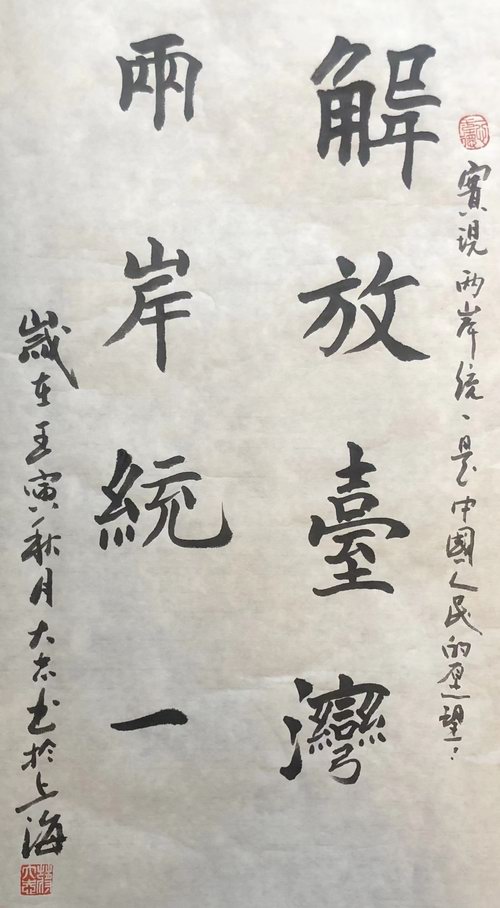 實現两岸統一是中國人民的愿望:
解放臺灣
兩岸統一
歲在壬寅秋月大书於上海